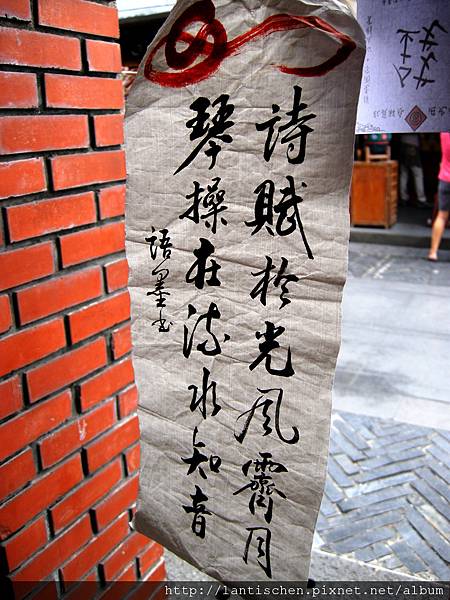 詩賦於光風霽月
琴操在流水知音
語墨書
http://lantischen.pixnet.net/album